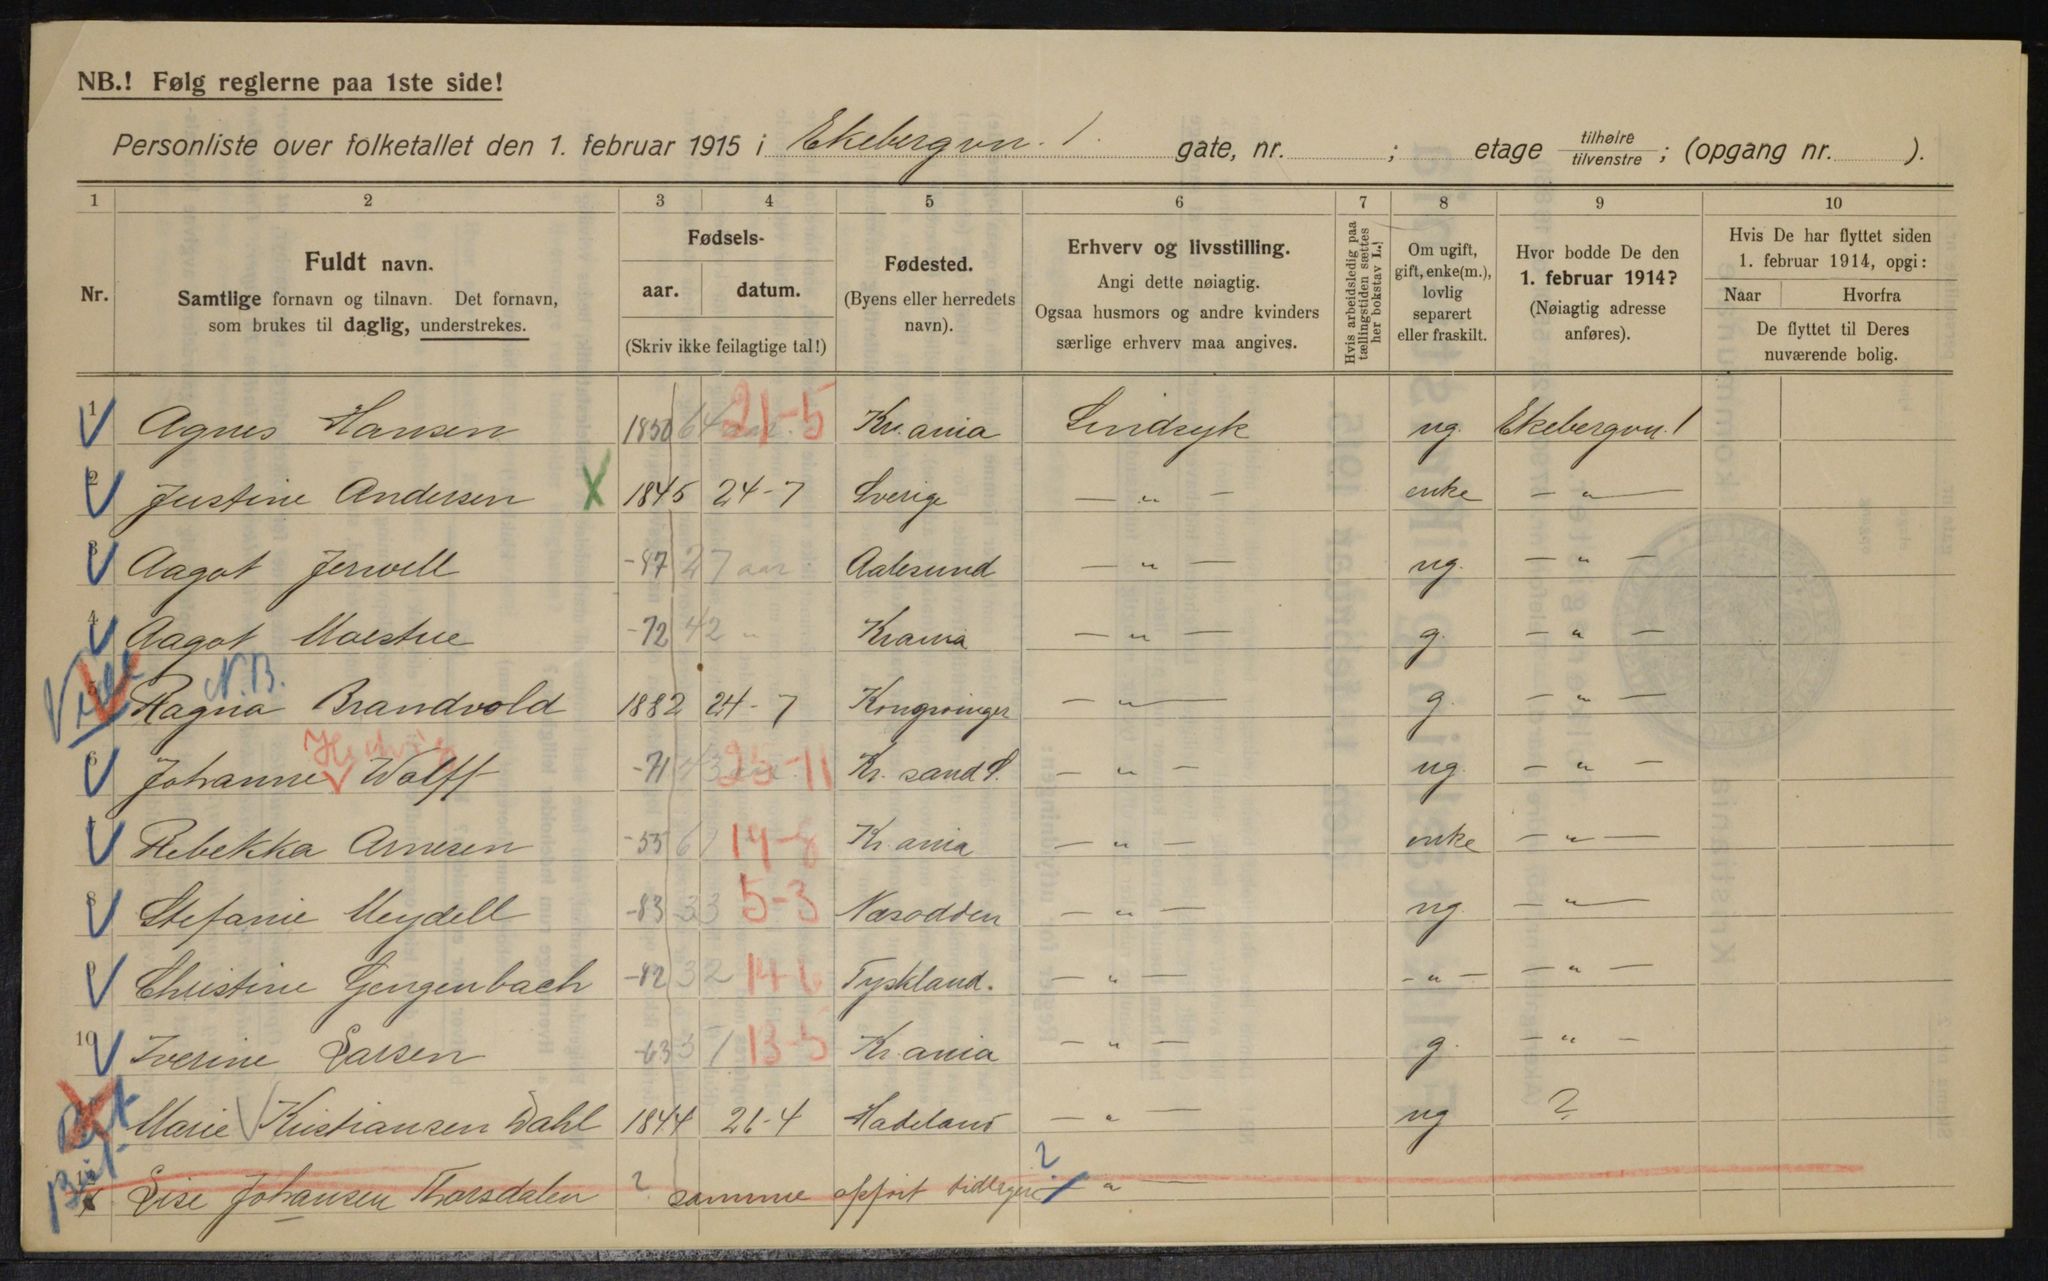 NB.! Følg reglerne paa 1ste side!
Personliste over folketallet den 1. februar 1915 i Ekebergvn. 1. gate, nr. ; etage tilhøire / tilvenstre ; (opgang nr. ).
1 2 3 4 5 6 7 8 9 10
Nr.
Fuldt navn.
Samtlige fornavn og tilnavn. Det fornavn,
som brukes til daglig, understrekes.
Fødsels-
aar. datum.
(Skriv ikke feilagtige tal!)
Fødested.
(Byens eller herredets
navn).
Erhverv og livsstilling.
Angi dette nøiagtig.
Ogsaa husmors og andre kvinders
særlige erhverv maa angives.
Hvis arbeidsledig paa
tællingstiden sættes
her bokstav L.!
Om ugift,
gift, enke(m.),
lovlig
separert
eller fraskilt.
Hvor bodde De den
1. februar 1914?
(Nøiagtig adresse
anføres).
Hvis De har flyttet siden
1. februar 1914, opgi:
Naar Hvorfra
De flyttet til Deres
nuværende bolig.
1 Agnes Hansen 1850 64 aar 21-5 Kr.ania Sindsyk ug. Ekebergvn. 1
2 Justine Andersen X 1845 24-7 Sverige — " — enke — " —
3 Aagot Jervell -87 27 aar Aalesund — " — ug. — " —
4 Aagot Moestue -72 42 " Krania — " — g. — " —
N.B.
5 Ragna Brandvold 1882 24-7 Kongsvinger — " — g. — " —
Hedvig
6 Johanne Wolff -71 43 aar 25-11 Kr. sand S. — " — ug. — " —
7 Rebekka Arnesen -53 61 19-8 Kr.ania — " — enke — " —
8 Stefanie Meydell -83 33 5-3 Næsodden — " — ug. — " —
9 Christine Gengenbach -82 32 14-6 Tyskland. — " — - " - — " —
10 Iverine Larsen -63 51 13-5 Kr.ania — " — g. — " —
Marie Kristiansen Dahl 1844 21-4 Hadeland — " — ug ?
Lise Johansen Thorsdalen ? samme opført tidligere ? — " —